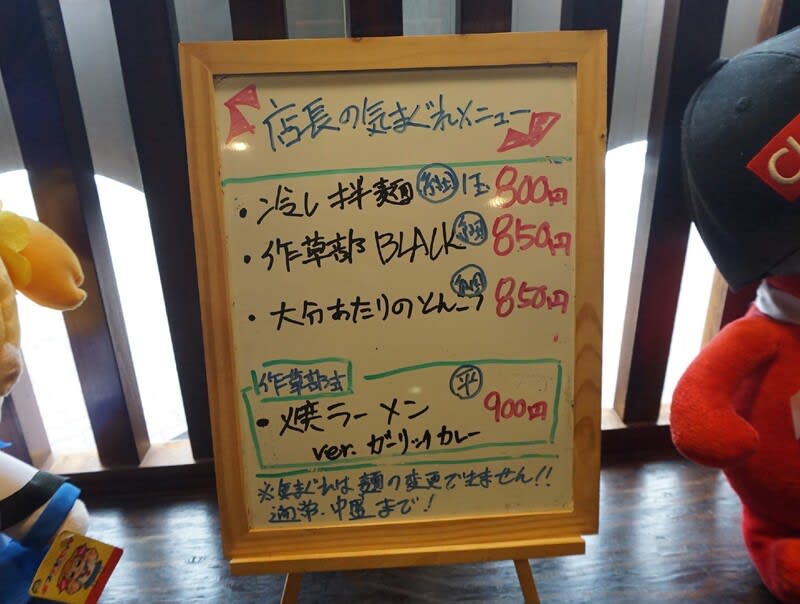 店長の気まぐれメニュー
・冷し拌麺 細 1玉 800円
・作草部 BLACK 細 850円
・大分あたりのとんこつ 細 850円
作草部式
・焼ラーメン 平 900円
ver. ガーリックカレー
※気まぐれは麺の変更できません!!
通常、中盛まで!